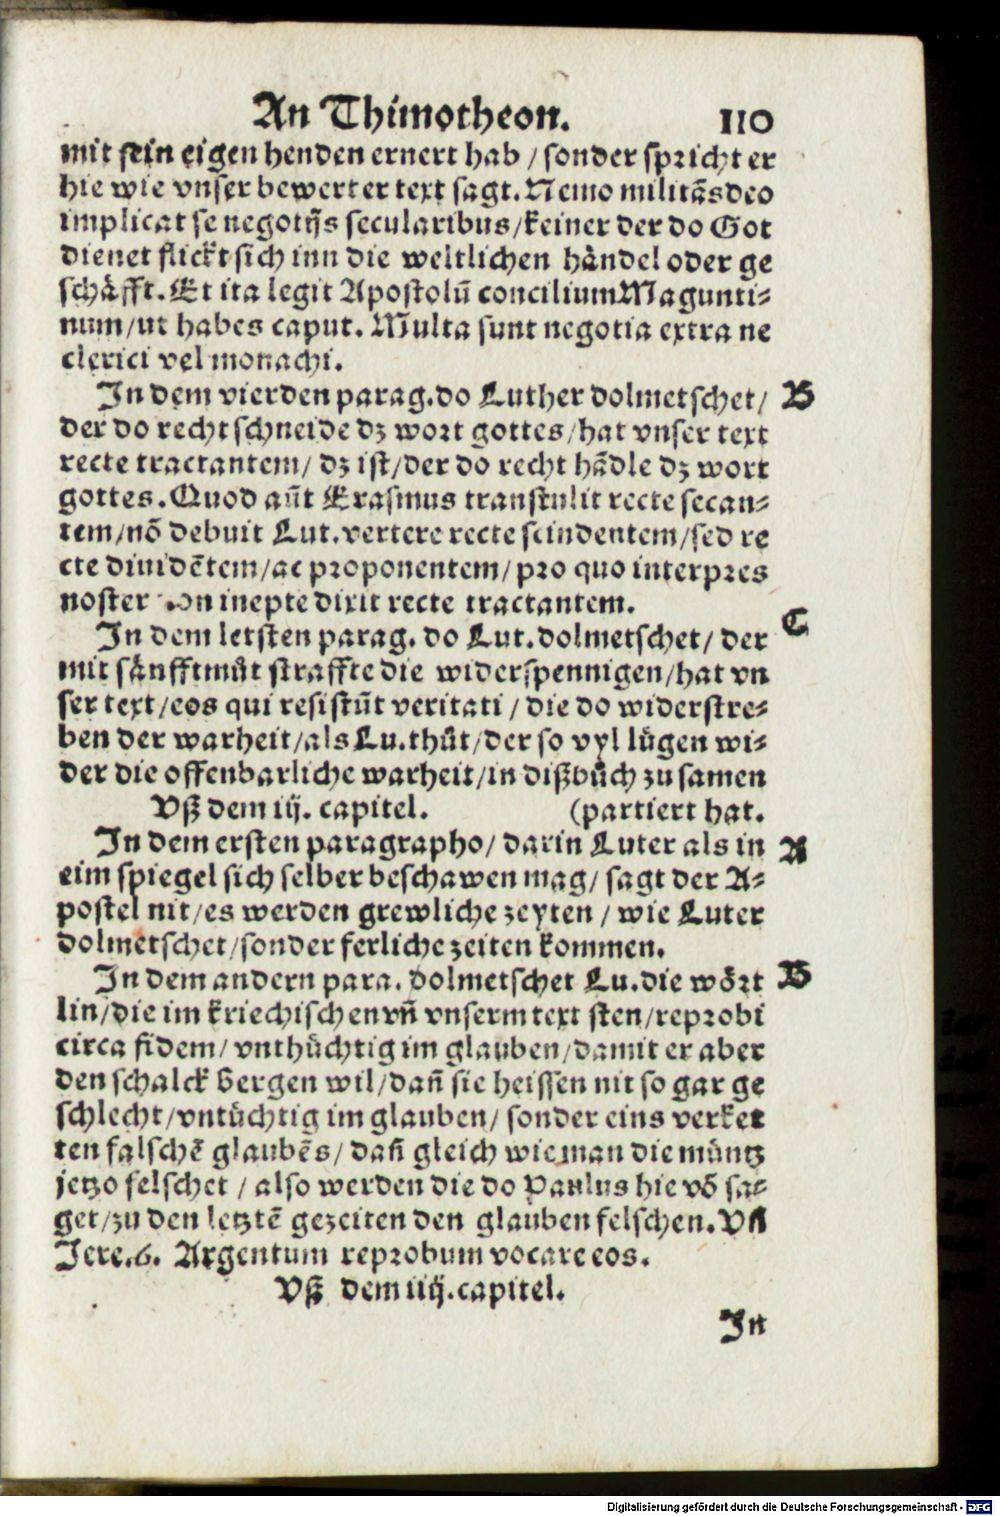 An Thimotheon. 110
mit sein eigen henden ernert hab / sonder spricht er
hie wie vnser bewerter text sagt. Nemo militās deo
implicat se negotijs secularibus/keiner der do Got
dienet flickt sich inn die weltlichen håndel oder ge
schåfft. Et ita legit Apostolū concilium Magunti-
num/ut habes caput. Multa sunt negotia extra ne
clerici vel monachi.
In dem vierden parag. do Luther dolmetschet/ B
der do recht schneide dz wort gottes/hat vnser text
recte tractantem/ dz ist/der do recht hādle dz wort
gottes. Quod aūt Erasmus transtulit recte secan-
tem/nō debuit Lut. vertere recte scindentem/sed re
cte diuidētem/ac proponentem/pro quo interpres
noster non inepte dixit recte tractantem.
In dem letsten parag. do Lut. dolmetschet/ der C
mit sånfftmůt straffte die widerspennigen/hat vn
ser text/eos qui resistūt veritati / die do widerstre-
ben der warheit/als Lu. thůt/der so vyl lügen wi-
der die offenbarliche warheit/in dißbůch zu samen
Vß dem iij. capitel. (partiert hat.
In dem ersten paragrapho/ darin Luter als in A
eim spiegel sich selber beschawen mag/ sagt der A-
postel nit/es werden grewliche zeyten / wie Luter
dolmetschet/sonder ferliche zeiten kommen.
In dem andern para. dolmetschet Lu. die wört B
lin/die im kriechischen vñ vnserm text sten/reprobi
circa fidem/ vnthüchtig im glauben/damit er aber
den schalck bergen wil/dañ sie heissen nit so gar ge
schlecht/vntüchtig im glauben/ sonder eins verker
ten falschē glaubēs/ dañ gleich wie man die müntz
jetzo felschet / also werden die do Paulus hie vō sa-
get/zu den letztē gezeiten den glauben felschen. Vñ
Jere. 6. Argentum reprobum vocare eos.
Vß dem iiij. capitel.
In
Digitalisierung gefördert durch die Deutsche Forschungsgemeinschaft - DFG